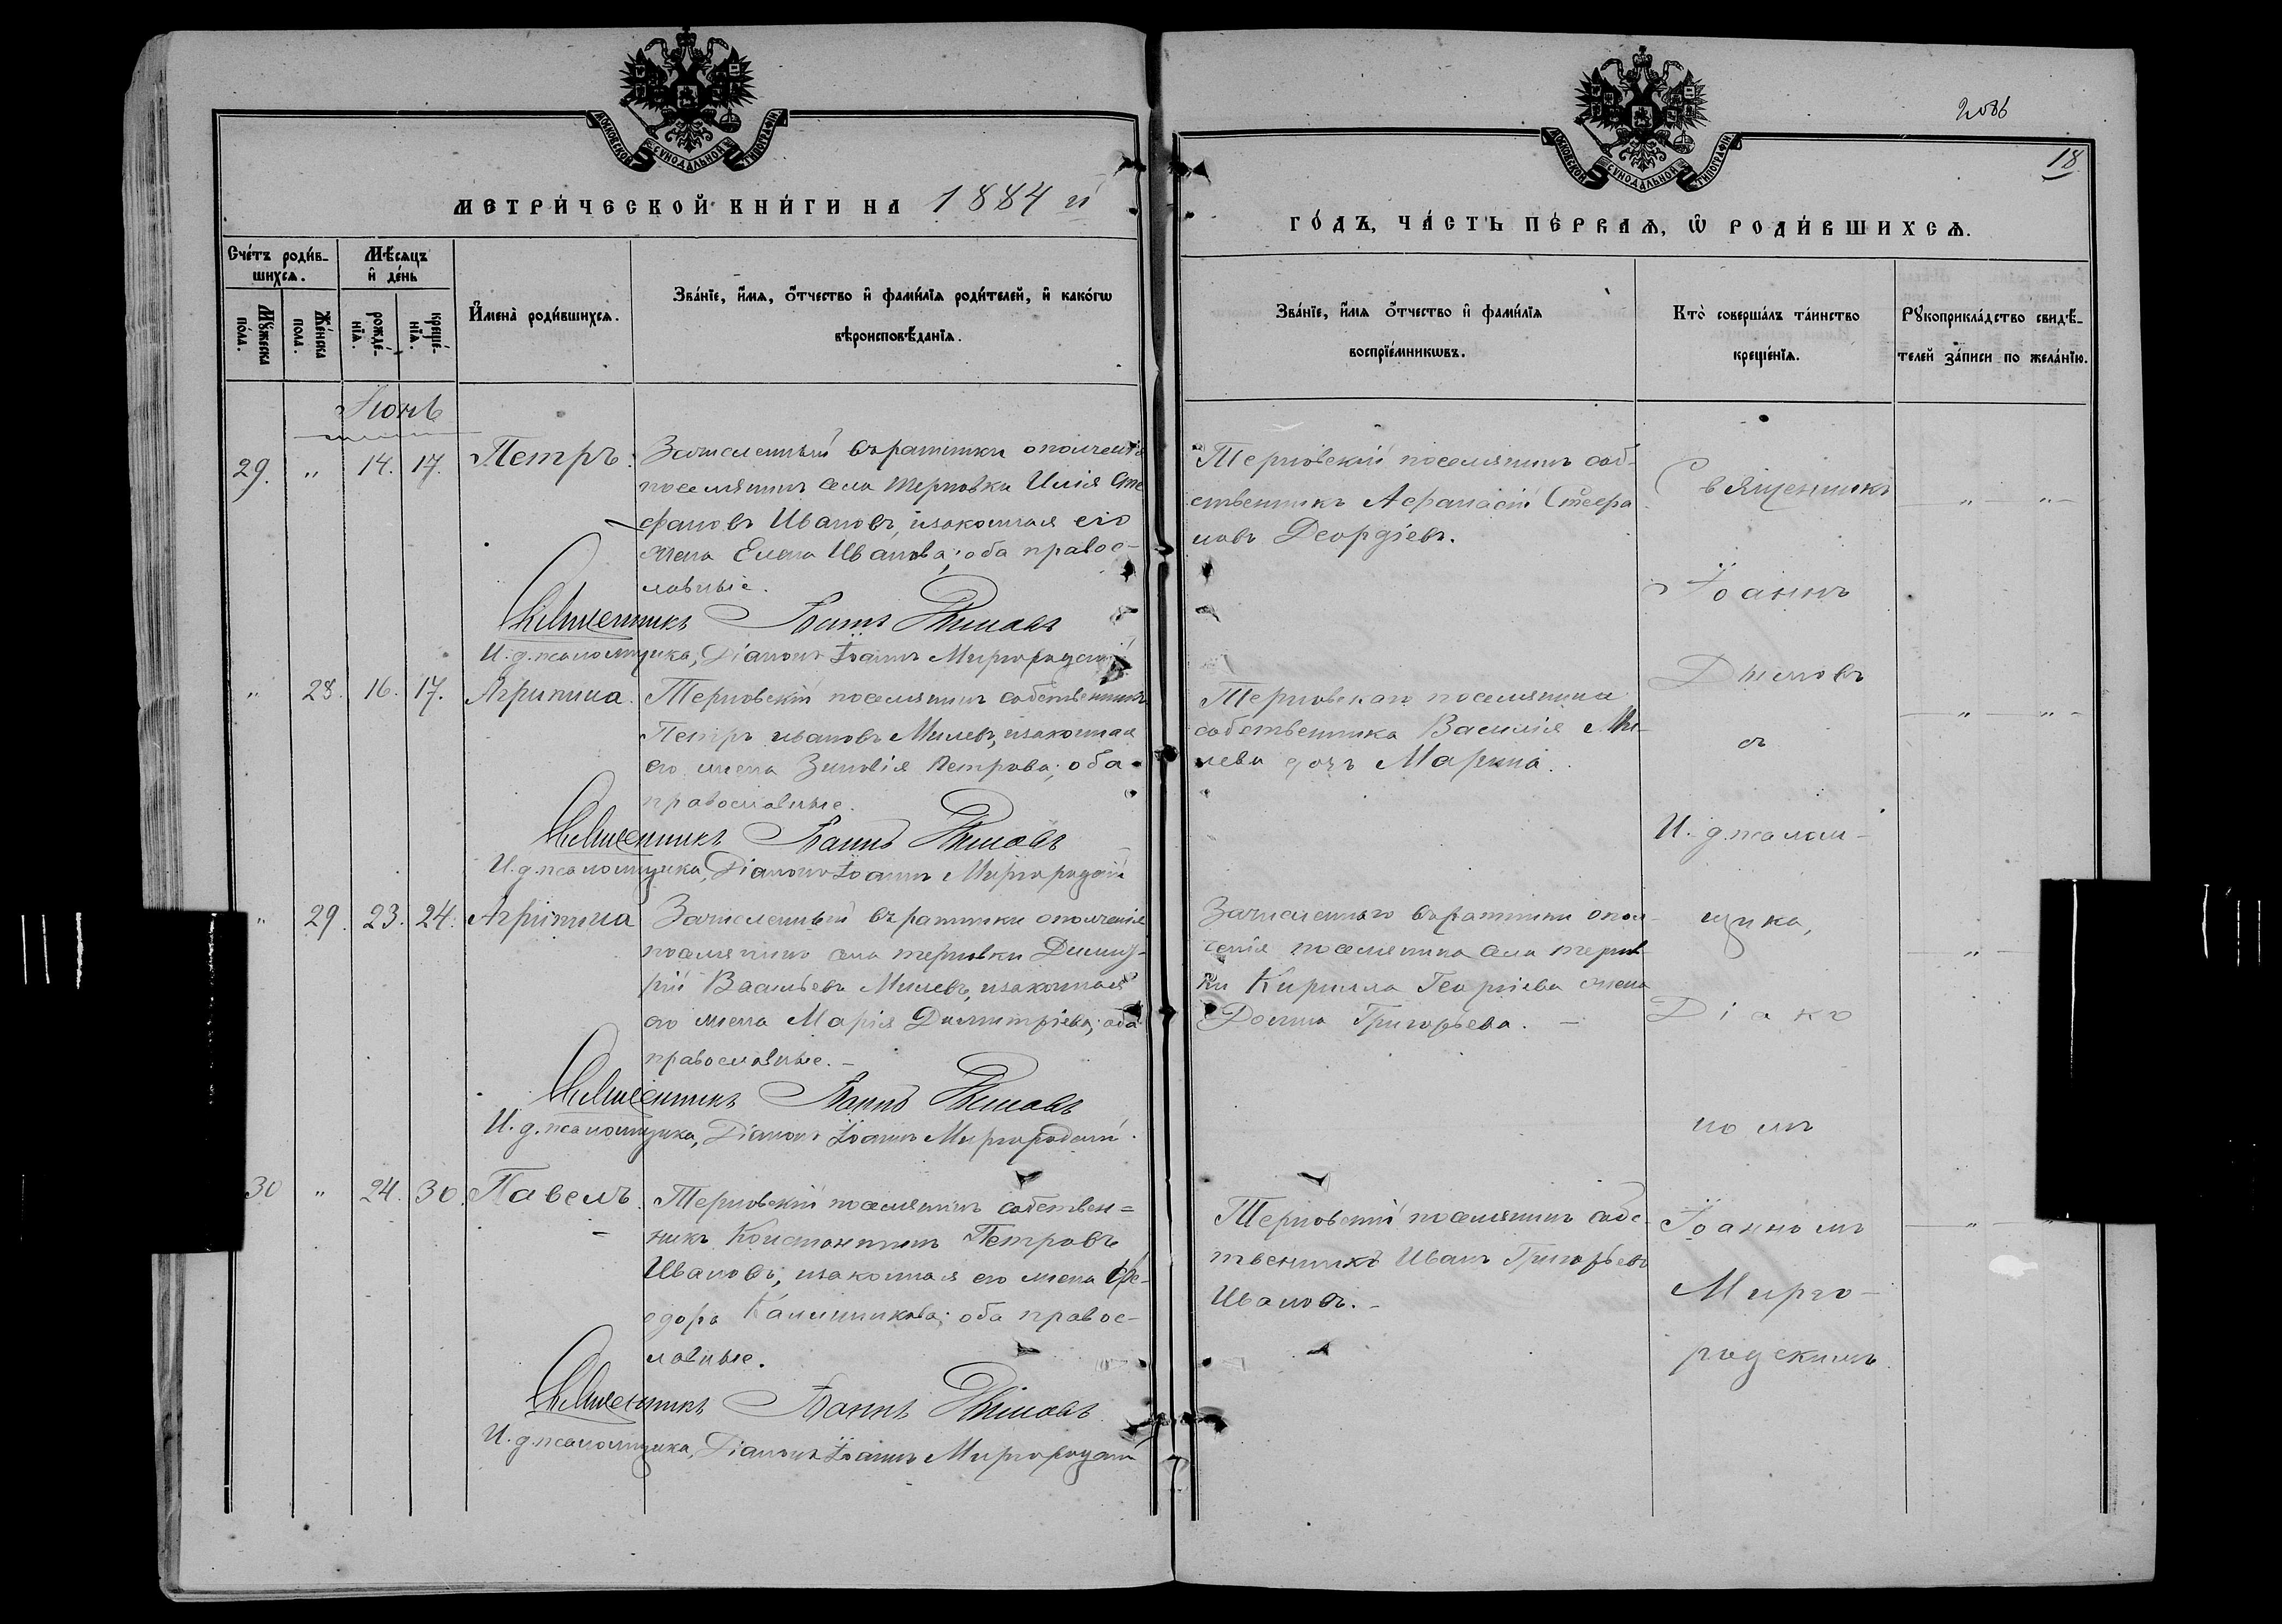 МОСКОВСКОЙ СУНОДАЛЬНОЙ ТИПОГРАФІИ
МЕТРИ́ЧЕСКОЙ КНИ́ГИ НА 1884 й
Сче́тъ роди́в-
шихся.
Мѣ́сяцъ
и҆ де́нь
Мꙋ́жеска
по́ла.
Же́нска
пола.
рожде́-
нїѧ.
креще́-
нїѧ.
И҆мена̀ роди́вшихсѧ.
Зва́нїе, и҆́мѧ, о҆́тчество и҆ фами́лїѧ роди́телей, и҆ како́гѡ
вѣроисповѣ́данїѧ.
Іюнь
29. " 14. 17. Петръ.
Зачисленный въ ратники ополченія
поселянинъ села Терновки Илія Сте
фановъ Ивановъ, изаконная его
жена Елена Иванова; оба правос-
лавные.
Священникъ Іоаннъ Дымовъ
И. д. псаломщика, Діаконъ Іоаннъ Миргородскій
" 28. 16. 17. Агрипина.
Терновскій поселянинъ собственникъ
Петръ Ивановъ Милевъ, изаконная
его жена Зиновія Петрова; оба
православные.
Священникъ Іоаннъ Дымовъ
И. д. псаломщика, Діаконъ Іоаннъ Миргородскій
" 29. 23. 24. Агрипина
Зачисленный въ ратники ополченія
поселянинъ села Терновки Димит-
рій Васильевъ Милевъ, изаконная
его жена Марія Димитріева; оба
православные. -
Священникъ Іоаннъ Дымовъ
И. д. псаломщика, Діаконъ Іоаннъ Миргородскій.
30 " 24. 30. Павелъ.
Терновскій поселянинъ собствен=
никъ Константинъ Петровъ
Ивановъ, изаконная его жена Фе-
одора Калинникова; оба правос-
лавные.
Священникъ Іоаннъ Дымовъ
И. д. псаломщика, Діаконъ Іоаннъ Миргородскій
18
МОСКОВСКОЙ СУНОДАЛЬНОЙ ТИПОГРАФІИ
ГО́ДЪ, ЧА́СТЬ ПЕ́РВАѦ, Ѡ҆ РОДИ́ВШИХСѦ.
Зва́нїе, и҆́мѧ о҆́тчество и҆ фами́лїѧ
воспрїе́мникѡвъ.
Кто̀ соверша́лъ та́инство
креще́нїѧ.
Рꙋкоприкла́дство свидѣ́-
телей за́писи по жела́нїю.
Терновскій поселянинъ соб-
ственникъ Афанасій Стефа
новъ Георгіевъ.
Терновскаго поселянина
собственника Василія Ми-
лева дочь Марина.
Зачисленнаго въ ратники опол-
ченія поселянина села Тернов-
ки Кирилла Георгіева жена
Домна Григорьева. -
Терновскій поселянинъ собс-
твенникъ Иванъ Григорьевъ
Ивановъ. -
Священникъ
Іоаннъ
Дымовъ
съ
И. д. псалом-
щика,
Діако
номъ
Іоанномъ
Мирго-
родскимъ.
" "
" "
"
" "